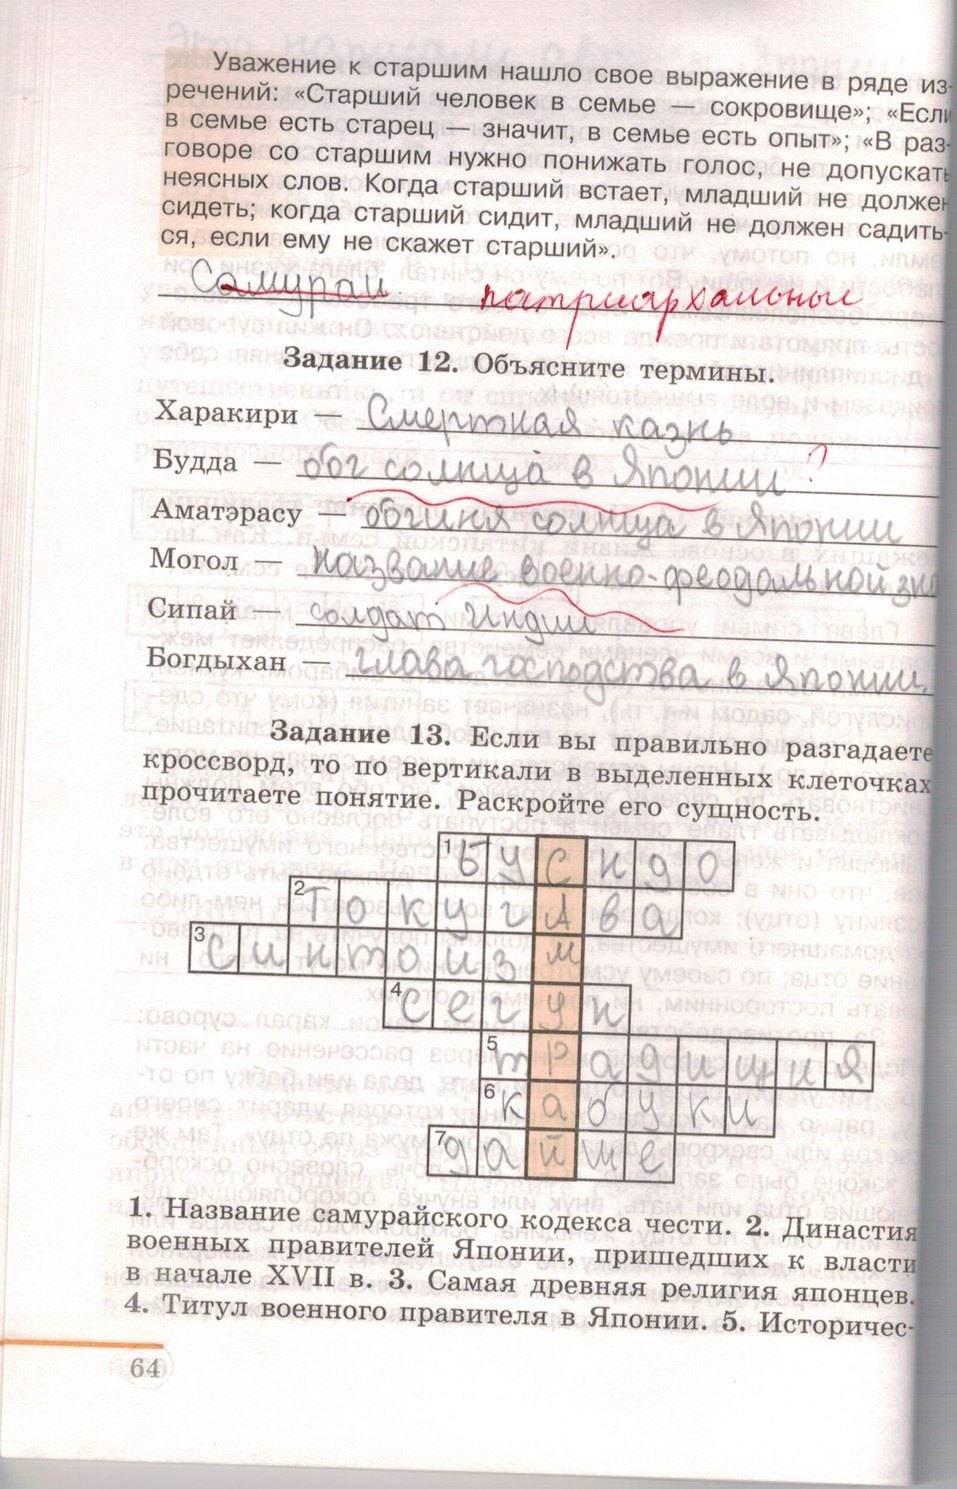 Уважение к старшим нашло свое выражение в ряде из-
речений: «Старший человек в семье — сокровище»; «Если
в семье есть старец — значит, в семье есть опыт»; «В раз-
говоре со старшим нужно понижать голос, не допускать
неясных слов. Когда старший встает, младший не должен
сидеть; когда старший сидит, младший не должен садить-
ся, если ему не скажет старший».
Самураи патриархальные
Задание 12. Объясните термины.
Харакири — Смертная казнь
Будда — бог солнца в Японии ?
Аматэрасу — богиня солнца в Японии
Могол — название военно-феодальной зна
Сипай — солдат Индии
Богдыхан — глава господства в Японии.
Задание 13. Если вы правильно разгадаете
кроссворд, то по вертикали в выделенных клеточках
прочитаете понятие. Раскройте его сущность.
1 Бусидо
2 Токугава
3 Синтоизм
4 Сегун
5 традиция
6 кабуки
7 даймё
1. Название самурайского кодекса чести. 2. Династия
военных правителей Японии, пришедших к власти
в начале XVII в. 3. Самая древняя религия японцев.
4. Титул военного правителя в Японии. 5. Историчес-
64